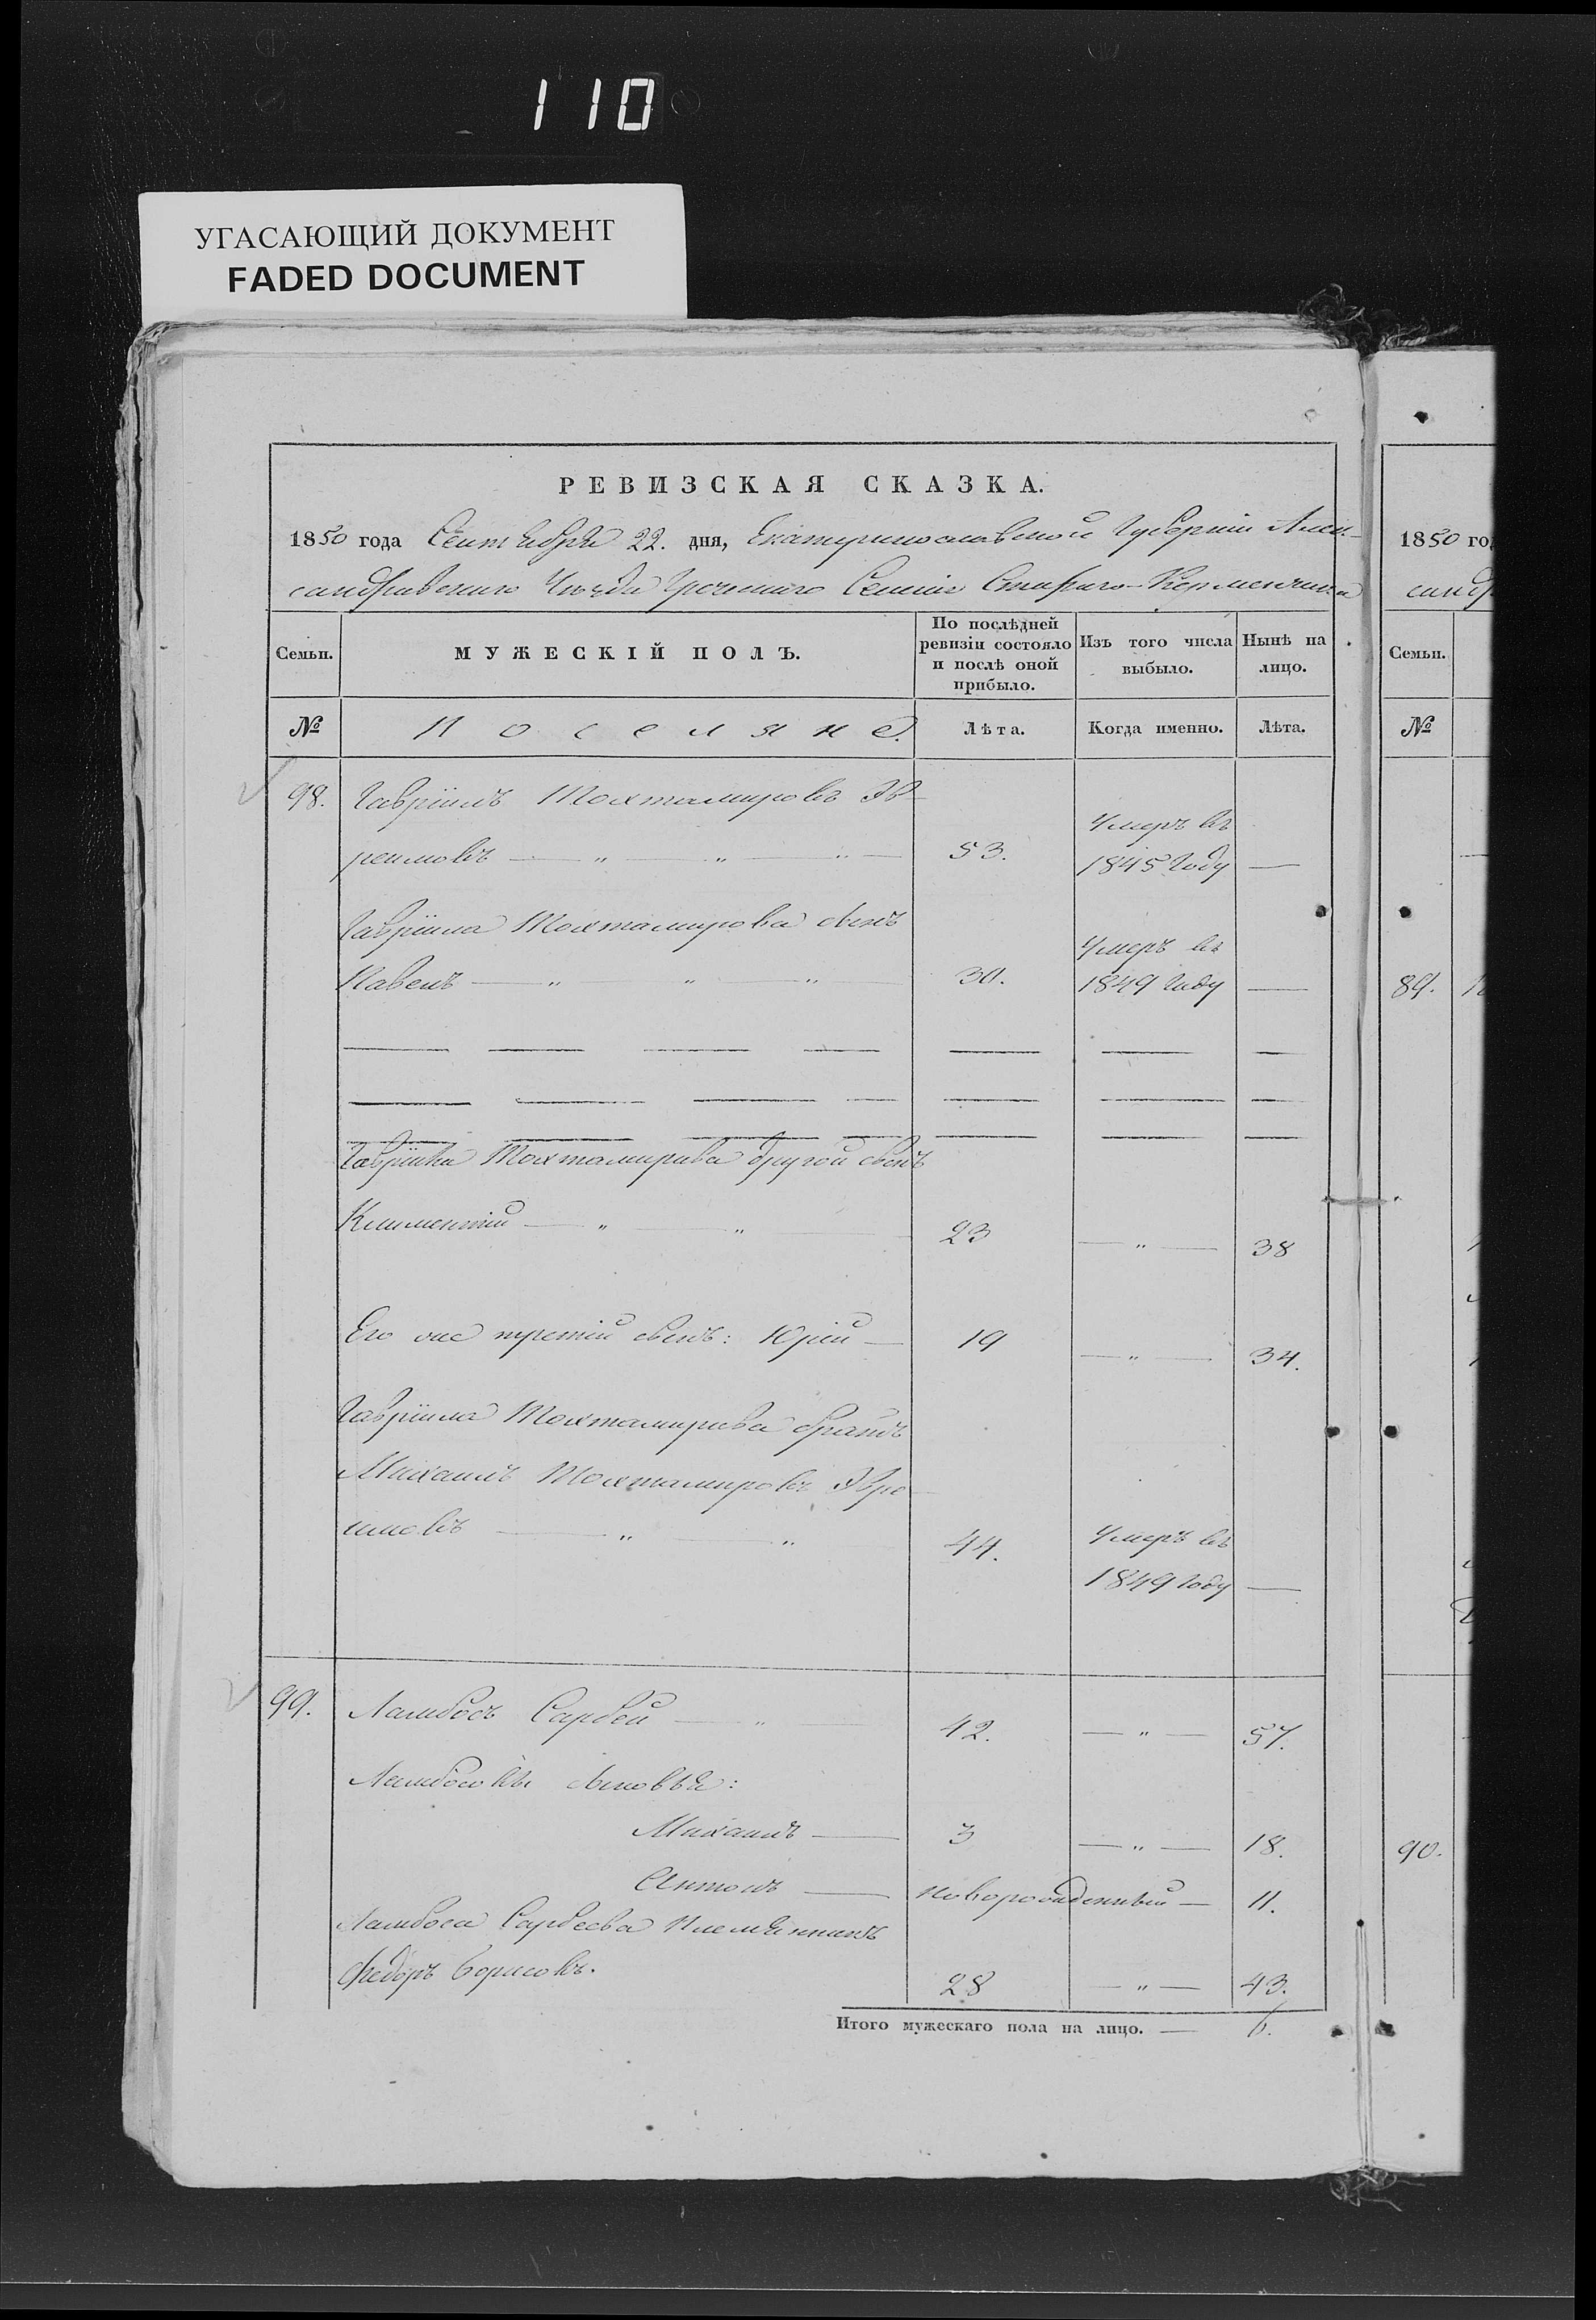 110
УГАСАЮЩИЙ ДОКУМЕНТ
FADED DOCUMENT
РЕВИЗСКАЯ СКАЗКА.
1850 года Сентября 22. дня, Екатеринославской Губернии Алек-
сандровскаго Уезда Греческого Селенія Стараго-Керменчика
Семьи.
МУЖЕСКІЙ ПОЛЪ.
По послѣдней ревизіи состояло и послѣ оной прибыло.
Изъ того числа выбыло.
Нынѣ на лицо.
№
Поселяне.
Лѣта.
Когда именно.
Лѣта.
98. Гавріилъ Тохтамировъ Эв-
реимовъ — " — " — " — 53. Умеръ въ 1845 Году —
Гавріила Тохтамирова сынъ
Павелъ — " — " — " — 30. Умеръ въ 1849 Году —
Гавріила Тохтамирова другой сынъ
Климентій — " — " — 23 — " — 38
Его же третій сынъ: Юрій — 19 — " — 34.
Гавріила Тохтамирова братъ
Михаилъ Тохтамировъ Эвре
имовъ — " — " 44. Умеръ въ 1849 Году —
99. Ламбосъ Сарбей — " — 42. — " — 57.
Ламбосовы сыновья:
Михаилъ — 3 — " — 18.
Антонъ — новорожденный — 11.
Ламбоса Сарбеева Племянникъ
Федоръ Борисовъ. 28 — " — 43.
Итого мужескаго пола на лицо. — 6.
1850 го
санд
Семьи.
№
89.
90.